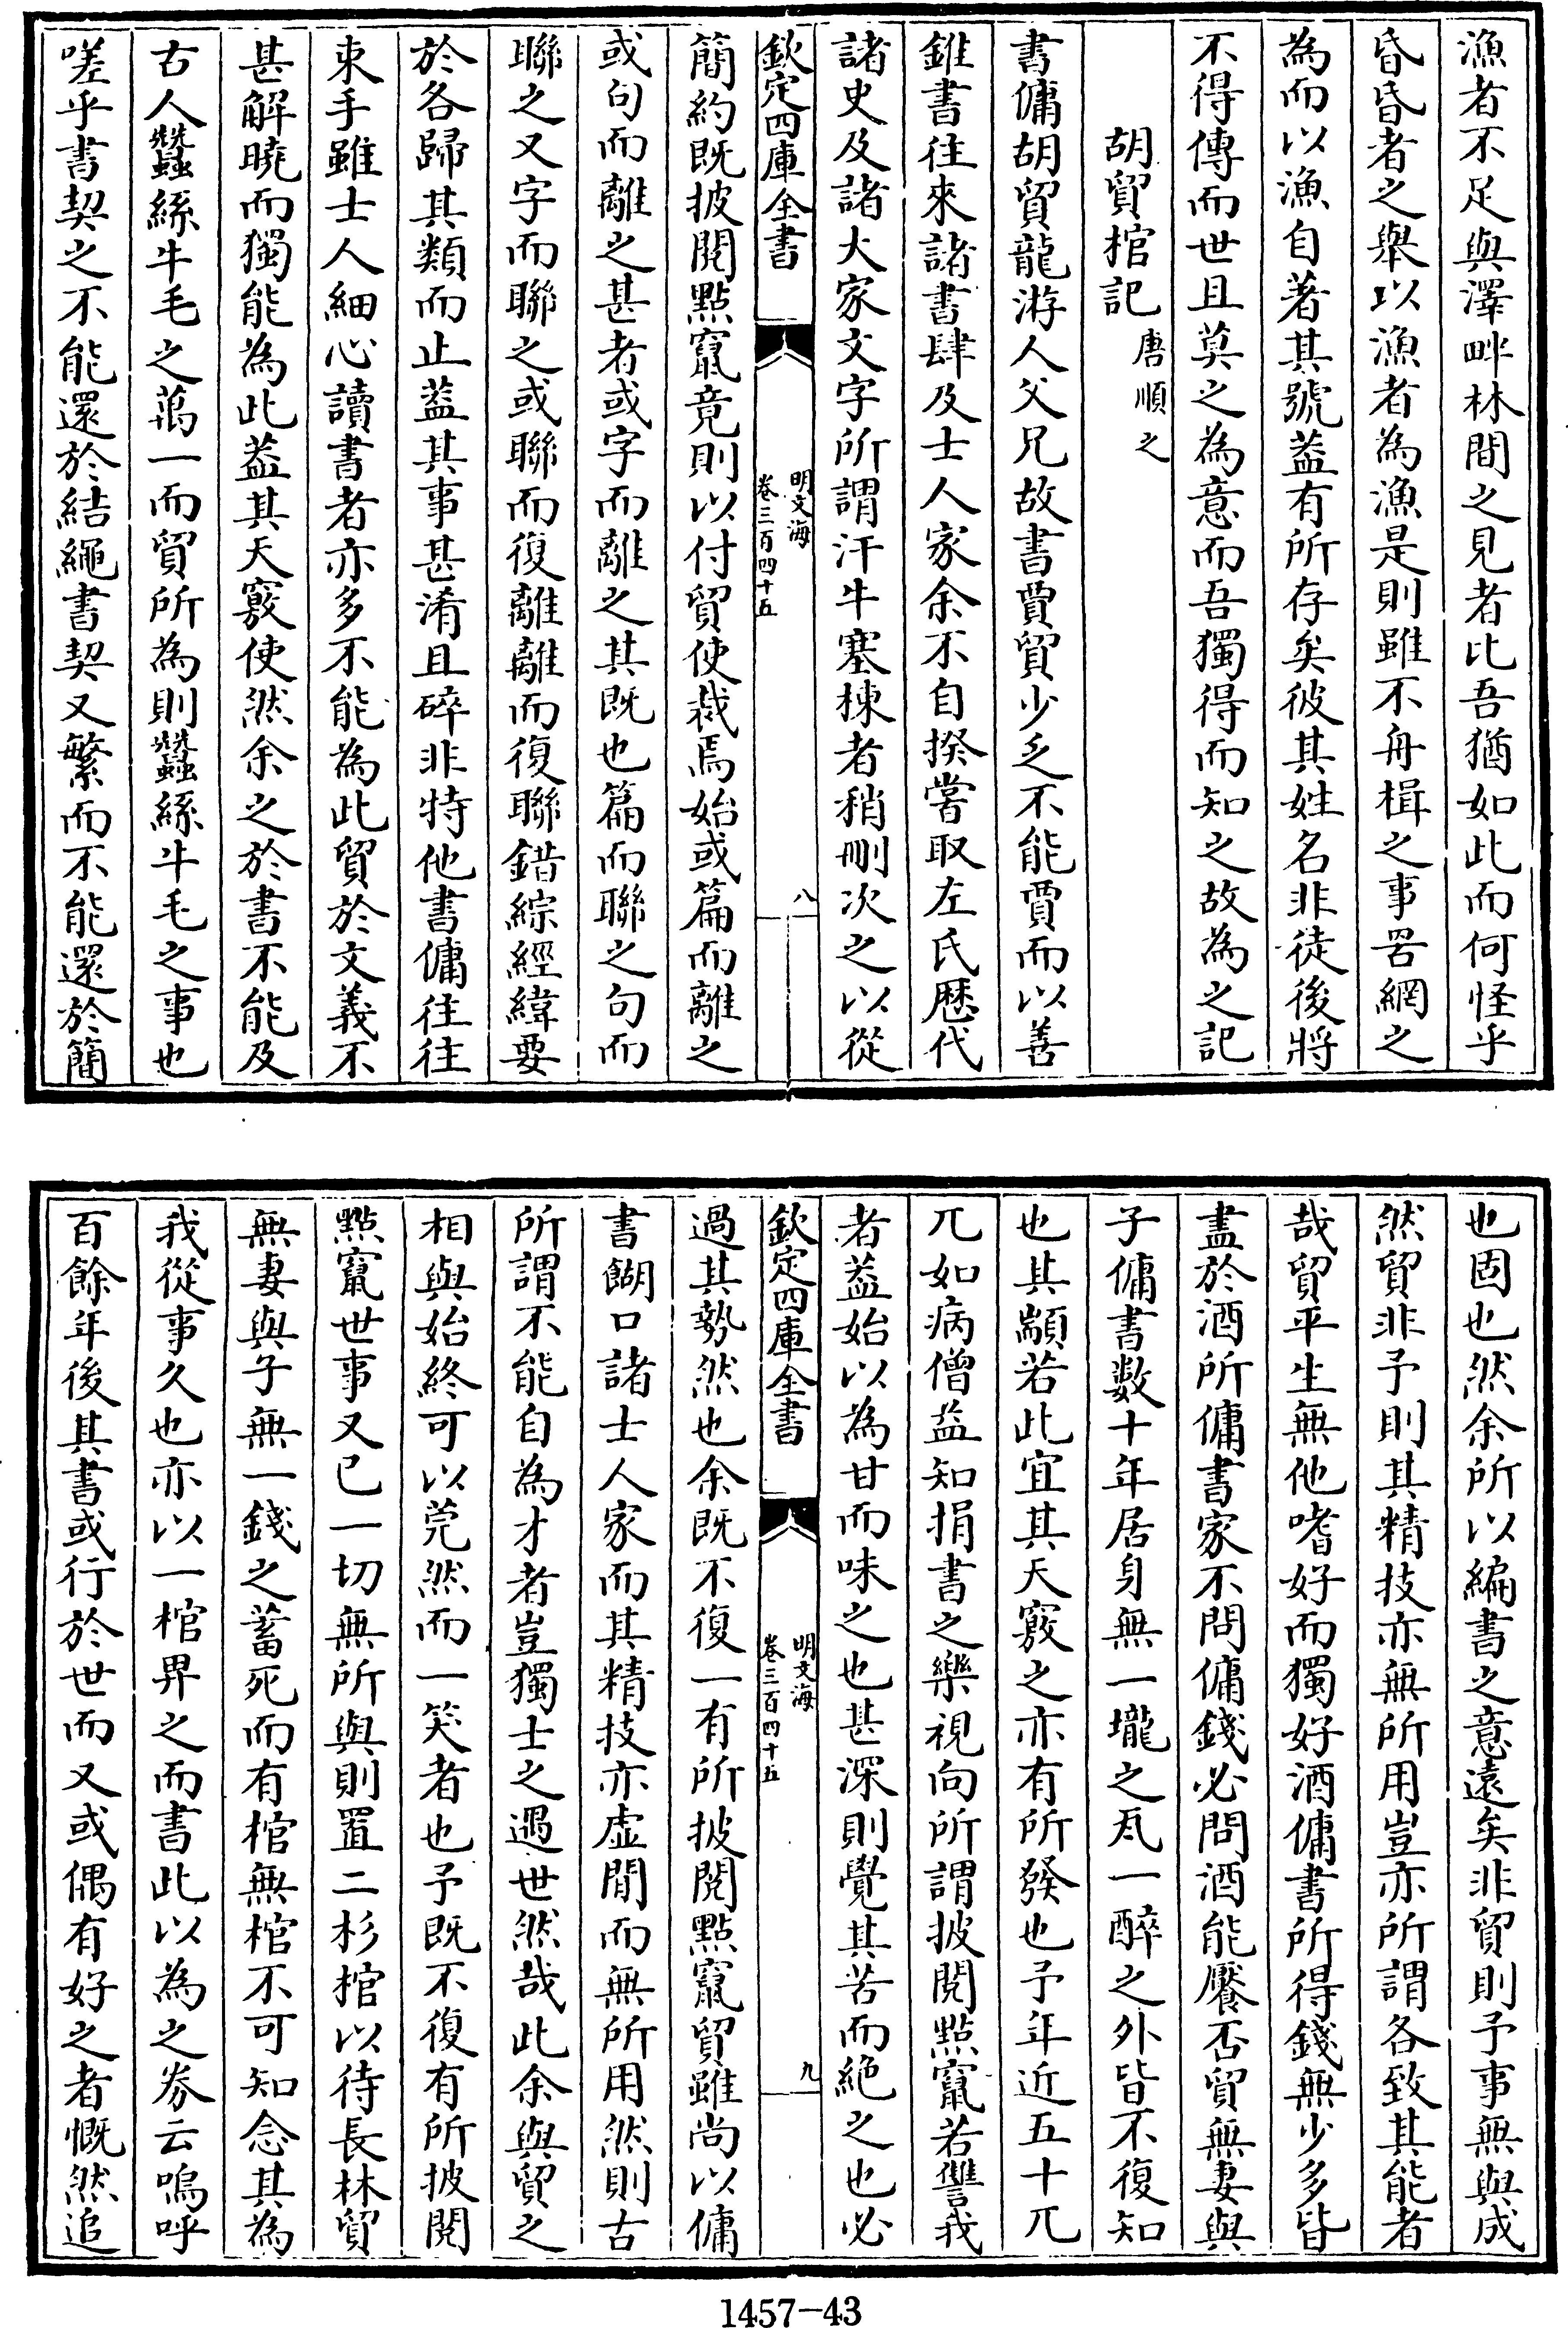 漁者不足與澤畔林間之見者比吾猶如此而何怪乎
昏昏者之舉以漁者為漁是則雖不舟楫之事罟網之
為而以漁自著其號葢有所存矣彼其姓名非徒後將
不得傳而世且莫之為意而吾獨得而知之故為之記
胡貿棺記唐順之
書傭胡貿龍游人父兄故書賈貿少乏不能賈而以善
錐書往來諸書肆及士人家余不自揆嘗取左氏歷代
諸史及諸大家文字所謂汗牛塞棟者稍刪次之以從
欽定四庫全書
明文海
卷三百四十五
八
簡約既披閱點竄竟則以付貿使裁焉始或篇而離之
或句而離之甚者或字而離之其既也篇而聯之句而
聯之又字而聯之或聯而復離離而復聯錯綜經緯要
於各歸其類而止葢其事甚淆且碎非特他書傭往往
束手雖士人細心讀書者亦多不能為此貿於文義不
甚解曉而獨能為此葢其天竅使然余之於書不能及
古人蠶絲牛毛之萬一而貿所為則蠶絲牛毛之事也
嗟乎書契之不能還於結繩書契又繁而不能還於簡
也固也然余所以編書之意遠矣非貿則予事無與成
然貿非予則其精技亦無所用豈亦所謂各致其能者
哉貿平生無他嗜好而獨好酒傭書所得錢無少多皆
盡於酒所傭書家不問傭錢必問酒能饜否貿無妻與
子傭書數十年居身無一壠之瓦一醉之外皆不復知
也其顓若此宜其天竅之亦有所發也予年近五十兀
兀如病僧益知捐書之樂視向所謂披閱點竄若讐我
者葢始以為甘而味之也甚深則覺其苦而絶之也必
欽定四庫全書
明文海
卷三百四十五
九
過其勢然也余既不復一有所披閱點竄貿雖尚以傭
書餬口諸士人家而其精技亦虛閒而無所用然則古
所謂不能自為才者豈獨士之遇世然哉此余與貿之
相與始終可以莞然而一笑者也予既不復有所披閱
點竄世事又已一切無所與則置二杉棺以待長林貿
無妻與子無一錢之蓄死而有棺無棺不可知念其為
我從事久也亦以一棺畀之而書此以為之券云嗚呼
百餘年後其書或行於世而又或偶有好之者慨然追
1457-43